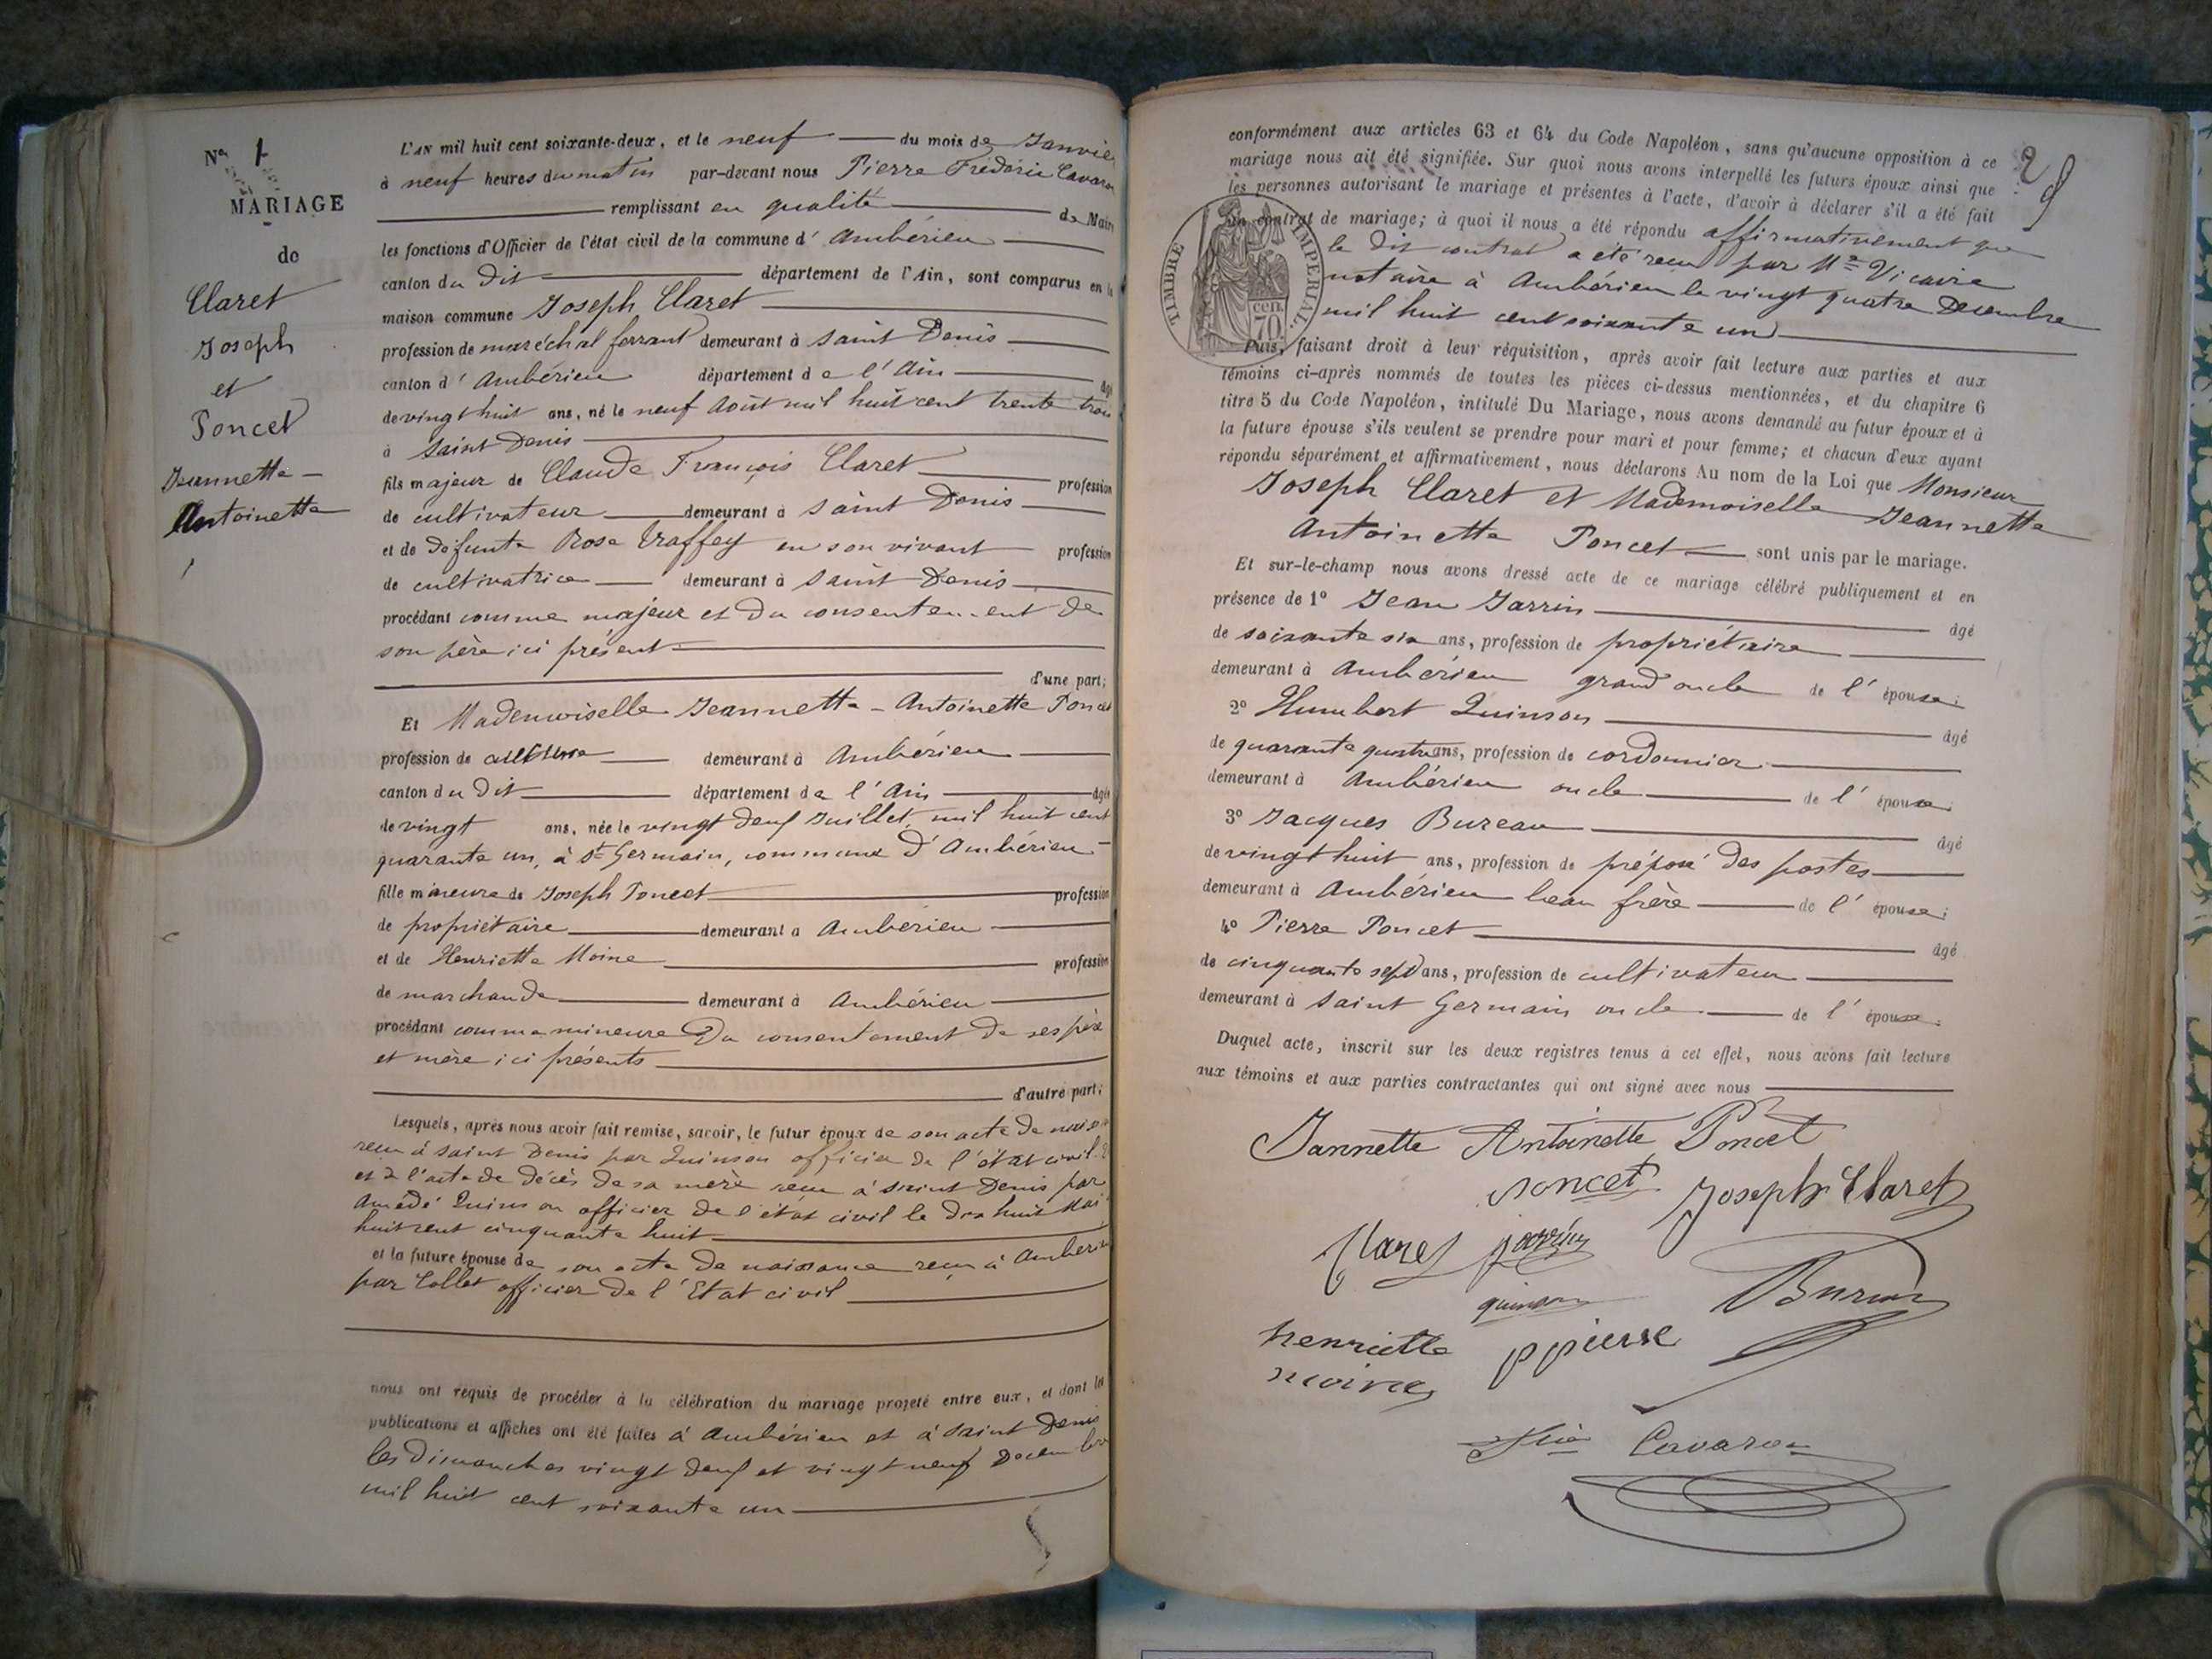 N° 1
MARIAGE
de
Claret
Joseph
et
Poncet
Jeannette -
Antoinette
L'AN mil huit cent soixante-deux, et le neuf du mois de Janvier
à neuf heures du matin par-devant nous Pierre Frédéric Cavaron
remplissant en qualité de Maire
les fonctions d'Officier de l'état civil de la commune d'Ambérieu
canton du dit département de l'Ain, sont comparus en la
maison commune Joseph Claret
profession de maréchal ferrant demeurant à Saint Denis
canton d'Ambérieu département de l'Ain âgé
de vingt huit ans, né le neuf Août mil huit cent trente trois
à Saint Denis
fils majeur de Claude François Claret profession
de cultivateur demeurant à Saint Denis
et de défunte Rose Traffey en son vivant profession
de cultivatrice demeurant à Saint Denis
procédant comme majeur et du consentement de
son père ici présent
d'une part;
Et Mademoiselle Jeannette - Antoinette Poncet
profession de demeurant à Ambérieu
canton du dit département de l'Ain âgée
de vingt ans, née le vingt deux Juillet mil huit cent
quarante un, à St Germain, commune d'Ambérieu
fille mineure de Joseph Poncet profession
de propriétaire demeurant à Ambérieu
et de Henriette Moine profession
de marchande demeurant à Ambérieu
procédant comme mineure du consentement de ses père
et mère ici présents
d'autre part;
Lesquels, après nous avoir fait remise, savoir, le futur époux de son acte de
reçu à Saint Denis par Quinson officier de l'état civil
et de l'acte de décès de sa mère reçu à Saint Denis par
Amédé Quinson officier de l'état civil le dix huit Mai
huit cent cinquante huit
et la future épouse de son acte de naissance reçu à Ambérieu
par Collet officier de l'Etat civil
nous ont requis de procéder à la célébration du mariage projeté entre eux, et dont les
publications et affiches ont été faites à Ambérieu et à Saint Denis
les dimanches vingt deux et vingt neuf Décembre
mil huit cent soixante un
29
conformément aux articles 63 et 64 du Code Napoléon, sans qu'aucune opposition à ce
mariage nous ait été signifiée. Sur quoi nous avons interpellé les futurs époux ainsi que
les personnes autorisant le mariage et présentes à l'acte, d'avoir à déclarer s'il a été fait
un contrat de mariage; à quoi il nous a été répondu affirmativement que
le dit contrat a été reçu par Me Vicaire
notaire à Ambérieu le vingt quatre Decembre
mil huit cent soixante un
TIMBRE IMPÉRIAL
70 cen.
Puis, faisant droit à leur réquisition, après avoir fait lecture aux parties et aux
témoins ci-après nommés de toutes les pièces ci-dessus mentionnées, et du chapitre 6
titre 5 du Code Napoléon, intitulé Du Mariage, nous avons demandé au futur époux et à
la future épouse s'ils veulent se prendre pour mari et pour femme; et chacun d'eux ayant
répondu séparément et affirmativement, nous déclarons Au nom de la Loi que Monsieur
Joseph Claret et Mademoiselle Jeannette
Antoinette Poncet sont unis par le mariage.
Et sur-le-champ nous avons dressé acte de ce mariage célébré publiquement et en
présence de 1° Jean Jarrin âgé
de soixante six ans, profession de propriétaire
demeurant à Ambérieu grand oncle de l'épouse;
2° Humbert Quinson âgé
de quarante quatre ans, profession de cordonnier
demeurant à Ambérieu oncle de l'épouse;
3° Jacques Bureau âgé
de vingt huit ans, profession de préposé des postes
demeurant à Ambérieu beau frère de l'épouse;
4° Pierre Poncet âgé
de cinquante sept ans, profession de cultivateur
demeurant à Saint Germain oncle de l'épouse.
Duquel acte, inscrit sur les deux registres tenus à cet effet, nous avons fait lecture
aux témoins et aux parties contractantes qui ont signé avec nous
Jannette Antoinette Poncet
Poncet Joseph Claret
Claret Jarrin
quinson Bureau
henriette p pierre
moine
Cavaron